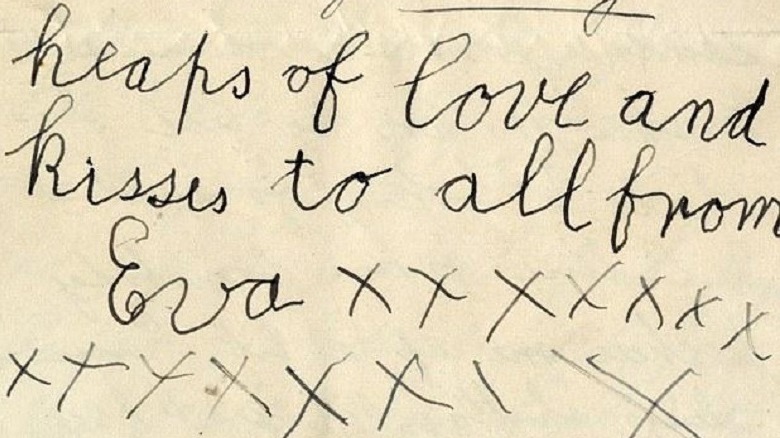 heaps of love and
kisses to all from
Eva x x x x x x x
x x x x x x \ x